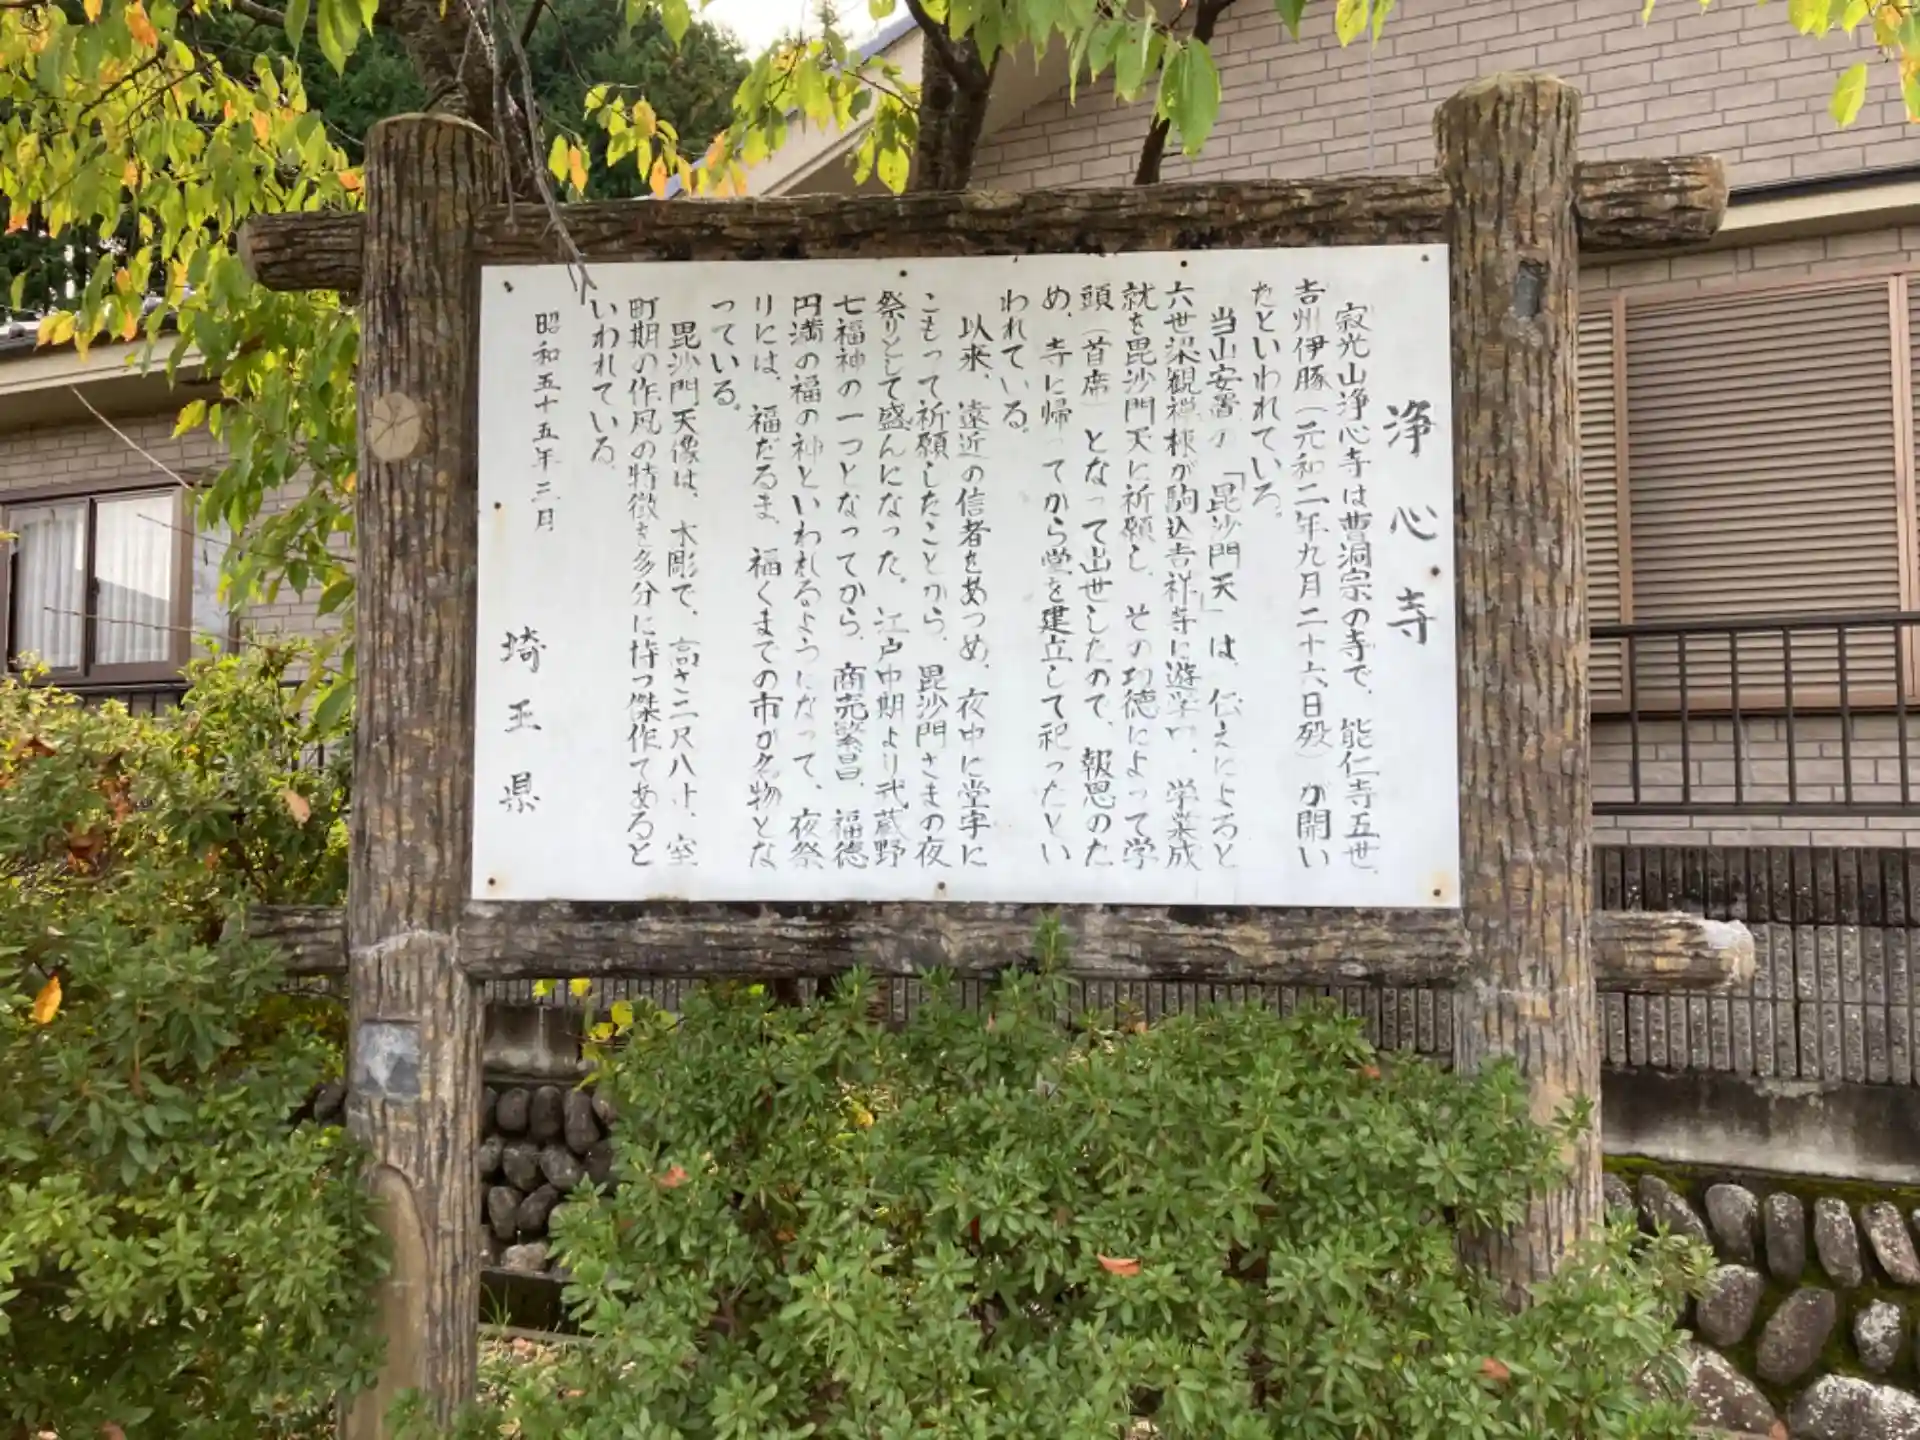 浄心寺
寂光山浄心寺は曹洞宗の寺で、能仁寺五世、
吉州伊豚(元和二年九月二十六日歿)が開い
たといわれている。
当山安置の「毘沙門天」は、伝えによると
六世梁観禅林が駒込吉祥寺に遊学中、学業成
就を毘沙門天に祈願し、その功徳によって学
頭(首席)となって出世したので、報恩のた
め、寺に帰ってから堂を建立して祀ったとい
われている。
以来、遠近の信者をあつめ、夜中に堂宇に
こもって祈願したことから、毘沙門さまの夜
祭りとして盛んになった。江戸中期より武蔵野
七福神の一つとなってから、商売繁昌、福徳
円満の福の神といわれるようになって、夜祭
りには、福だるま、福くまでの市が名物とな
っている。
毘沙門天像は、木彫で、高さ二尺八寸、室
町期の作風の特徴を多分に持つ傑作であると
いわれている。
昭和五十五年三月
埼玉県